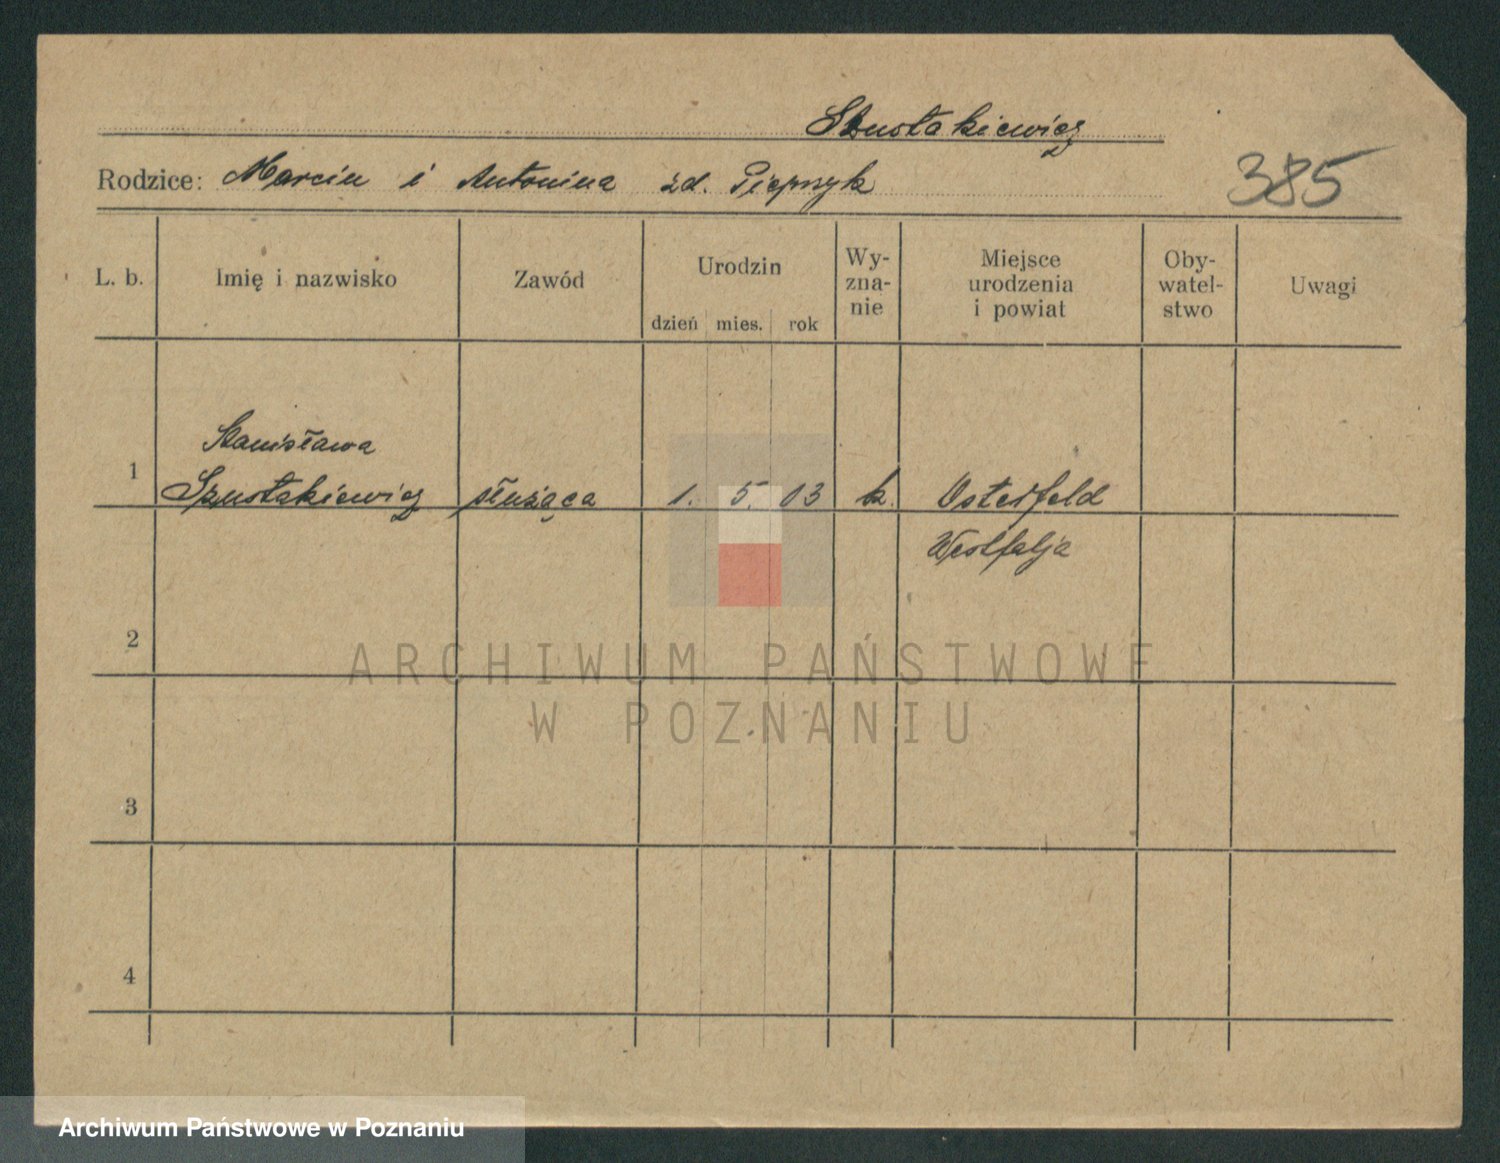 Szustakiewicz
Rodzice: Marcin i Antonina zd. Pieprzyk
385
L. b. Imię i nazwisko Zawód Urodzin dzień mies. rok Wy-zna-nie Miejsce urodzenia i powiat Oby-watel-stwo Uwagi
Stanisława
1 Szustakiewicz służąca 1. 5. 03 k. Osterfeld
Westfalja
2
ARCHIWUM PAŃSTWOWE
W POZNANIU
3
4
Archiwum Państwowe w Poznaniu